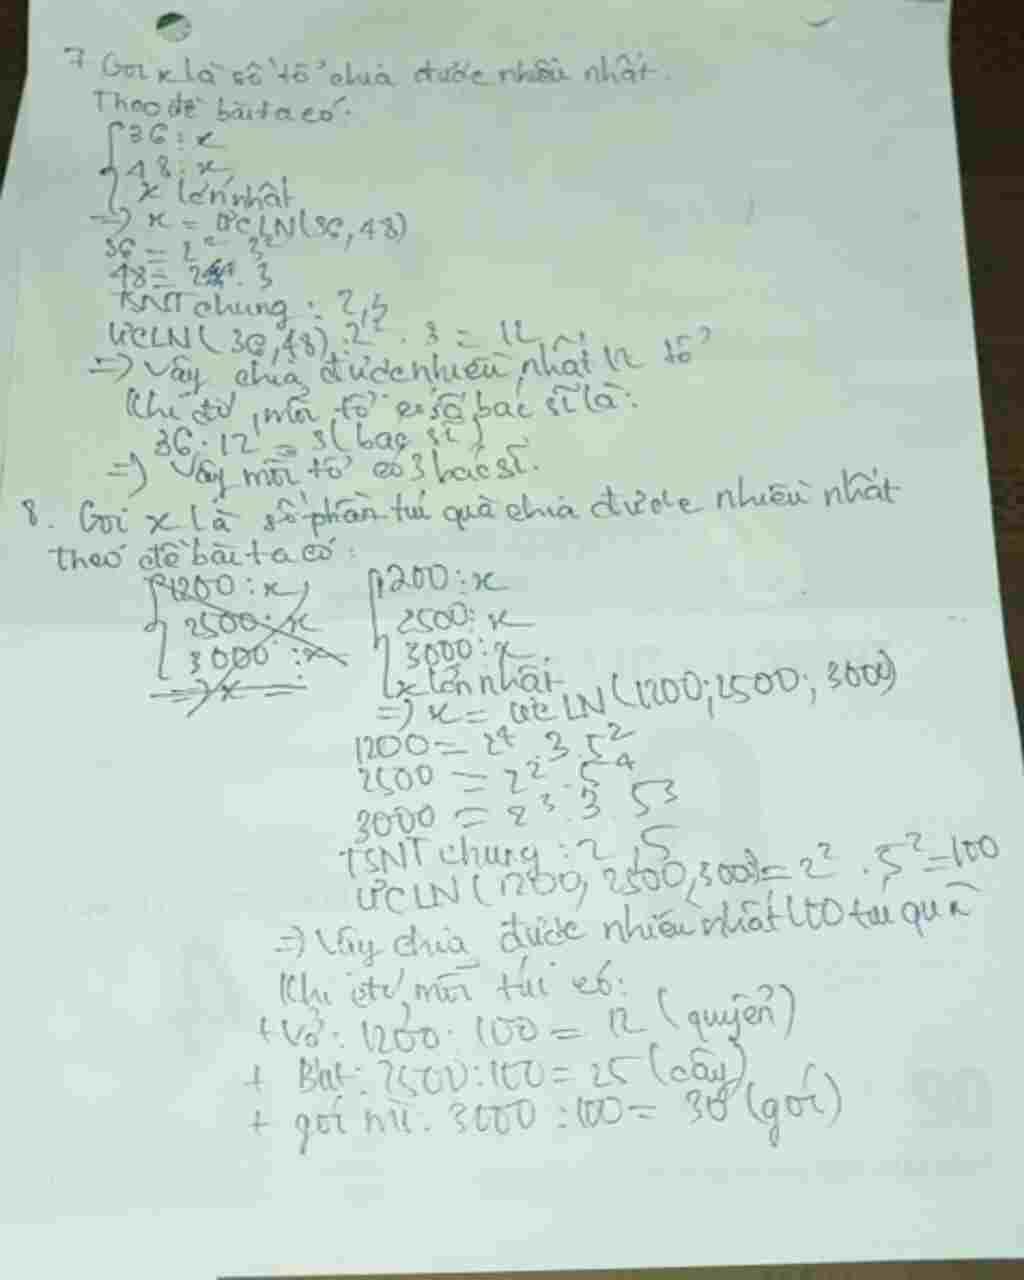 7 Gọi x là số tổ chia được nhiều nhất.
Theo đề bài ta có.
36 : x
48 : x
x lớn nhất
=> x = ƯCLN(36, 48)
36 = 2² 3²
48 = 2⁴ . 3
TSNT chung : 2, 3
ƯCLN(36, 48) : 2² . 3 = 12
=> Vậy chia được nhiều nhất 12 tổ
Khi đó, mỗi tổ có số bác sĩ là:
36 : 12 = 3 (bác sĩ)
=> Vậy mỗi tổ có 3 bác sĩ.
8. Gọi x là số phần túi quà chia được nhiều nhất
theo đề bài ta có :
1200 : x
2500 : x
3000 : x
=> x =
1200 : x
2500 : x
3000 : x
x lớn nhất
=> x = ƯCLN(1200; 2500; 3000)
1200 = 2⁴ . 3 . 5²
2500 = 2² . 5⁴
3000 = 2³ . 3 . 5³
TSNT chung : 2, 5
ƯCLN(1200, 2500, 3000) = 2² . 5² = 100
=> Vậy chia được nhiều nhất 100 túi quà
Khi đó, mỗi túi có:
+ Vở : 1200 : 100 = 12 (quyển)
+ Bút : 2500 : 100 = 25 (cây)
+ gói mì : 3000 : 100 = 30 (gói)